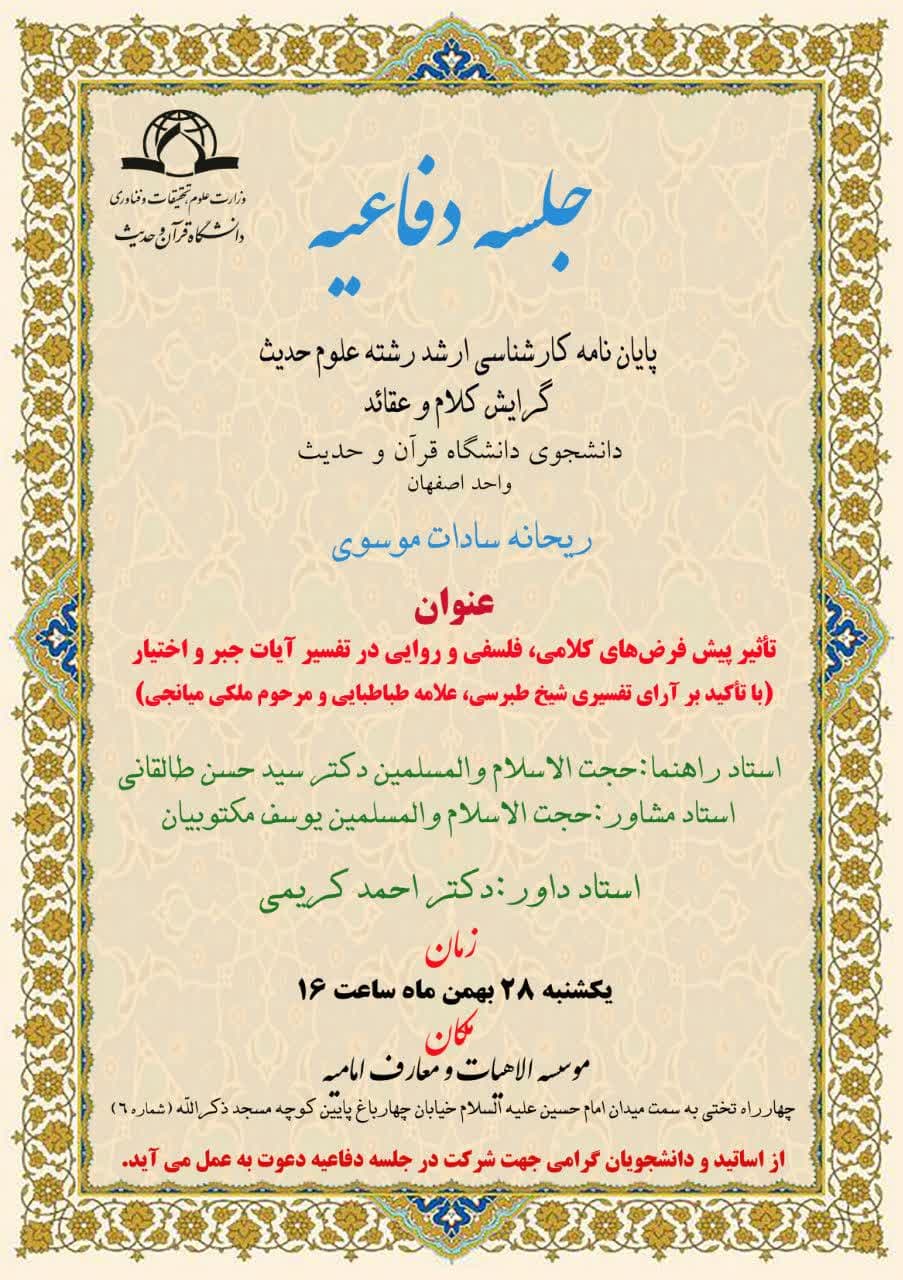 وزارت علوم، تحقیقات و فناوری
دانشگاه قرآن و حدیث
جلسه دفاعیه
پایان نامه کارشناسی ارشد رشته علوم حدیث
گرایش کلام و عقائد
دانشجوی دانشگاه قرآن و حدیث
واحد اصفهان
ریحانه سادات موسوی
عنوان
تأثیر پیش فرض‌های کلامی، فلسفی و روایی در تفسیر آیات جبر و اختیار
(با تأکید بر آرای تفسیری شیخ طبرسی، علامه طباطبایی و مرحوم ملکی میانجی)
استاد راهنما:حجت الاسلام والمسلمین دکتر سید حسن طالقانی
استاد مشاور:حجت الاسلام والمسلمین یوسف مکتوبیان
استاد داور:دکتر احمد کریمی
زمان
یکشنبه ۲۸ بهمن ماه ساعت ۱۶
مکان
موسسه الاهیات و معارف امامیه
چهارراه تختی به سمت میدان امام حسین علیه السلام خیابان چهارباغ پایین کوچه مسجد ذکرالله (شماره ۶)
از اساتید و دانشجویان گرامی جهت شرکت در جلسه دفاعیه دعوت به عمل می آید.